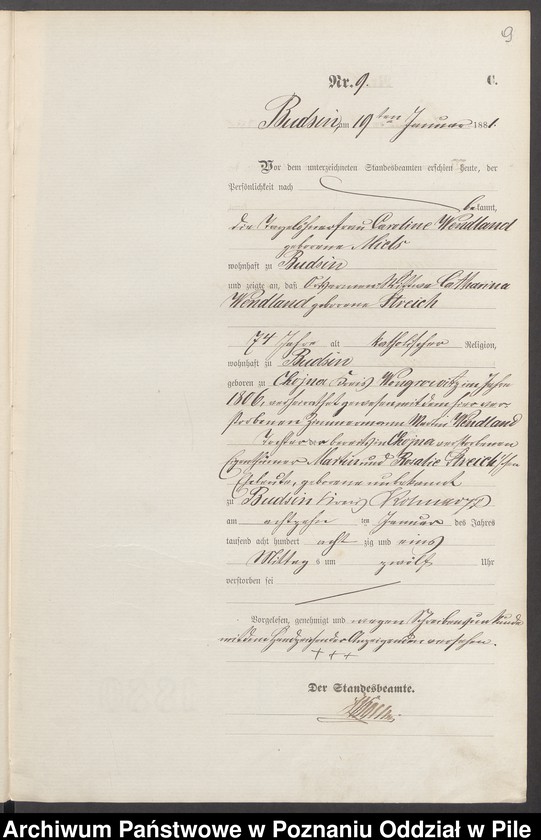 9
Nr. 9. C.
Budsin, am 19ten Januar 1881.
Vor dem unterzeichneten Standesbeamten erschien heute, der
Persönlichkeit nach
bekannt,
die Tagelöhnerfrau Caroline Wendland
geborene Miels
wohnhaft zu Budsin
und zeigte an, daß Wittwe Catharina
Wendland geborene Streich
74 Jahre alt katholischer Religion,
wohnhaft zu Budsin
geboren zu Chojna Kreis Wongrowitz im Jahre
1806, verheirathet gewesen mit dem hier ver-
storbenen Zimmermann Wendland
Tochter der bereits in Chojna verstorbenen
Eigenthümer Martin und Rosalie Streich'schen
Eheleute, geborene unbekannt
zu Budsin Kreis Kolmar
am achtzehn im Januar des Jahres
tausend acht hundert achtzig und eins
Mittags um zwölf Uhr
verstorben sei
Vorgelesen, genehmigt und wegen Schreibensunkunde
mit dem Handzeichen der Anzeigenden versehen.
+++
Der Standesbeamte.
Archiwum Państwowe w Poznaniu Oddział w Pile